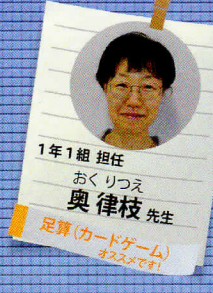 1年1組 担任
おく りつえ
奥 律枝 先生
足算(カードゲーム)
オススメです!